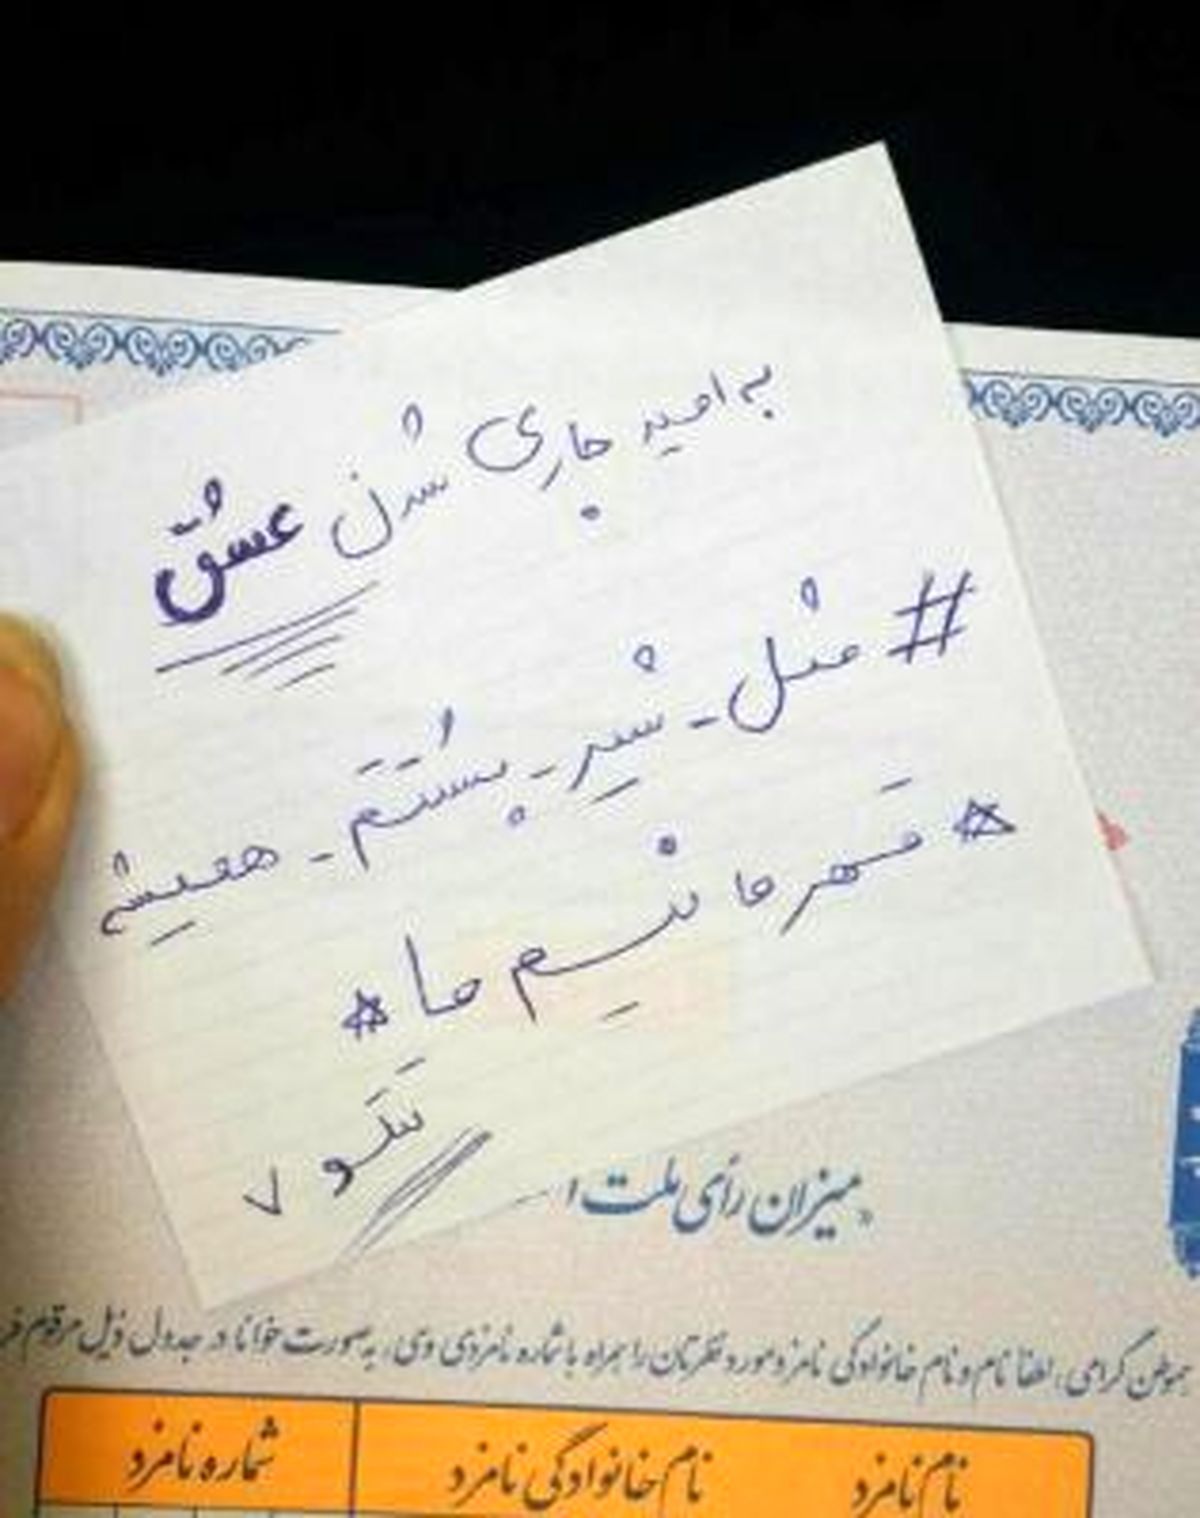 به امید جاری شدن عشق
# مثل_شیر_پشتم_همیشه
☆ قهرمانیم ما ☆
تتلو ۷
«میزان رأی ملت ا
هموطن گرامی، لطفا نام و نام خانوادگی نامزد مورد نظرتان را همراه با شماره نامزدی وی، به صورت خوانا در جدول ذیل مرقوم فر
نام نامزد نام خانوادگی نامزد شماره نامزد